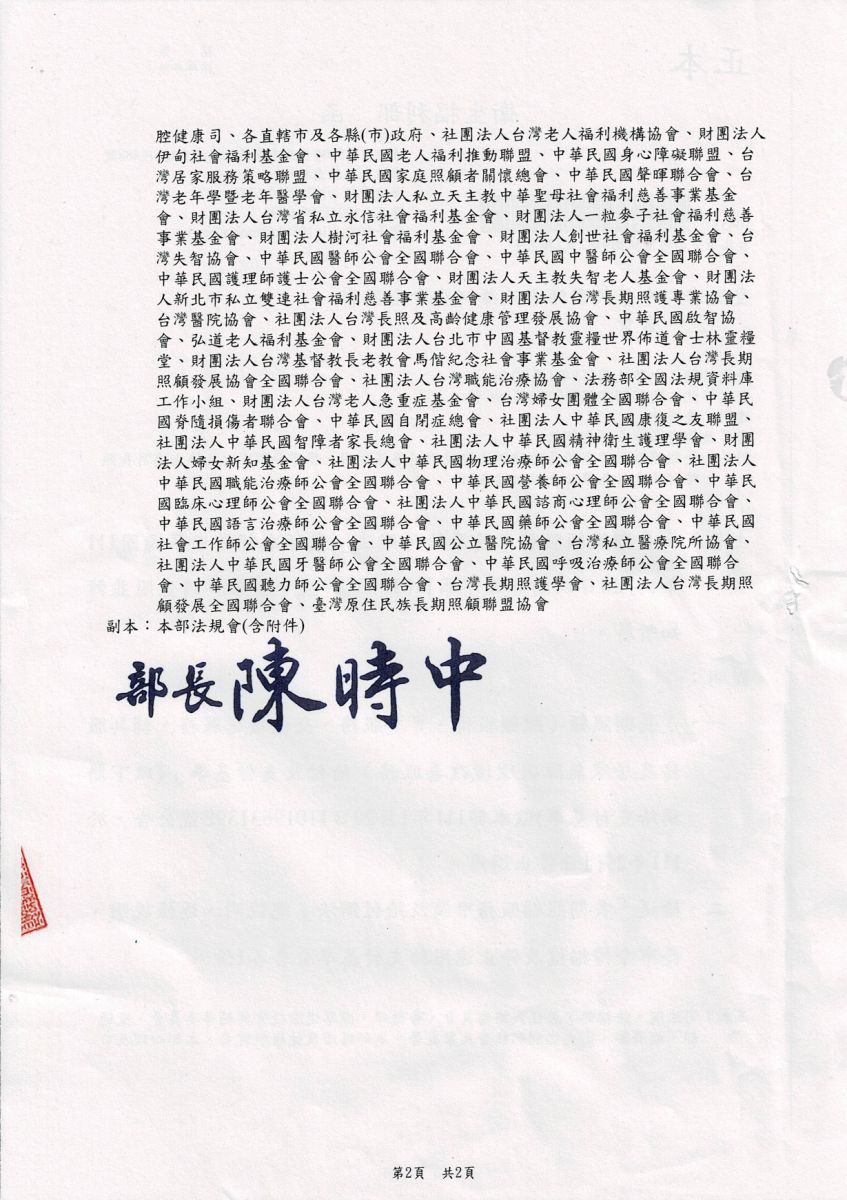 腔健康司、各直轄市及各縣(市)政府、社團法人台灣老人福利機構協會、財團法人
伊甸社會福利基金會、中華民國老人福利推動聯盟、中華民國身心障礙聯盟、台
灣居家服務策略聯盟、中華民國家庭照顧者關懷總會、中華民國聲暉聯合會、台
灣老年學暨老年醫學會、財團法人私立天主教中華聖母社會福利慈善事業基金
會、財團法人台灣省私立永信社會福利基金會、財團法人一粒麥子社會福利慈善
事業基金會、財團法人樹河社會福利基金會、財團法人創世社會福利基金會、台
灣失智協會、中華民國醫師公會全國聯合會、中華民國中醫師公會全國聯合會、
中華民國護理師護士公會全國聯合會、財團法人天主教失智老人基金會、財團法
人新北市私立雙連社會福利慈善事業基金會、財團法人台灣長期照護專業協會、
台灣醫院協會、社團法人台灣長照及高齡健康管理發展協會、中華民國啟智協
會、弘道老人福利基金會、財團法人台北市中國基督教靈糧世界佈道會士林靈糧
堂、財團法人台灣基督教長老教會馬偕紀念社會事業基金會、社團法人台灣長期
照顧發展協會全國聯合會、社團法人台灣職能治療協會、法務部全國法規資料庫
工作小組、財團法人台灣老人急重症基金會、台灣婦女團體全國聯合會、中華民
國脊隨損傷者聯合會、中華民國自閉症總會、社團法人中華民國康復之友聯盟、
社團法人中華民國智障者家長總會、社團法人中華民國精神衛生護理學會、財團
法人婦女新知基金會、社團法人中華民國物理治療師公會全國聯合會、社團法人
中華民國職能治療師公會全國聯合會、中華民國營養師公會全國聯合會、中華民
國臨床心理師公會全國聯合會、社團法人中華民國諮商心理師公會全國聯合會、
中華民國語言治療師公會全國聯合會、中華民國藥師公會全國聯合會、中華民國
社會工作師公會全國聯合會、中華民國公立醫院協會、台灣私立醫療院所協會、
社團法人中華民國牙醫師公會全國聯合會、中華民國呼吸治療師公會全國聯合
會、中華民國聽力師公會全國聯合會、台灣長期照護學會、社團法人台灣長期照
顧發展全國聯合會、臺灣原住民族長期照顧聯盟協會
副本：本部法規會(含附件)
部長陳時中
第2頁 共2頁